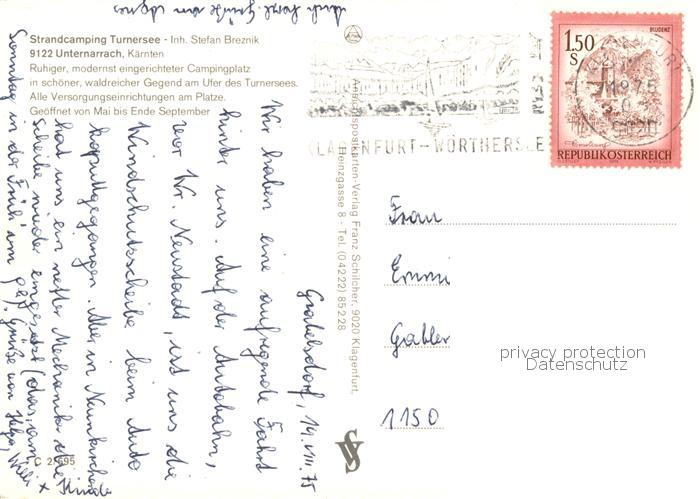 Strandcamping Turnersee - Inh. Stefan Breznik
9122 Unternarrach, Kärnten
Ruhiger, modernst eingerichteter Campingplatz
in schöner, waldreicher Gegend am Ufer des Turnersees.
Alle Versorgungseinrichtungen am Platze.
Geöffnet von Mai bis Ende September
Grabelsdorf, 14. VIII. 75
Wir haben eine aufregende Fahrt
hinter uns. Auf der Autobahn,
vor Wr. Neustadt, ist uns die
Windschutzscheibe beim Auto
kaputtgegangen. Aber in Neunkirchen
hat uns ein netter Mechaniker die
Scheibe wieder eingesetzt (das, am
Sonntag in der Früh um
Grüße von Helga, Willi +
Kinder
auch herzl. Grüße von Agnes
Ansichtspostkarten-Verlag Franz Schilcher, 9020 Klagenfurt,
Heinzgasse 8 - Tel. (04222) 85228
C 2/695
KLAGENFURT-WÖRTHERSEE
BLUDENZ
1.50
S
REPUBLIK ÖSTERREICH
Frau
Emmi
Gabler
1150
privacy protection
Datenschutz